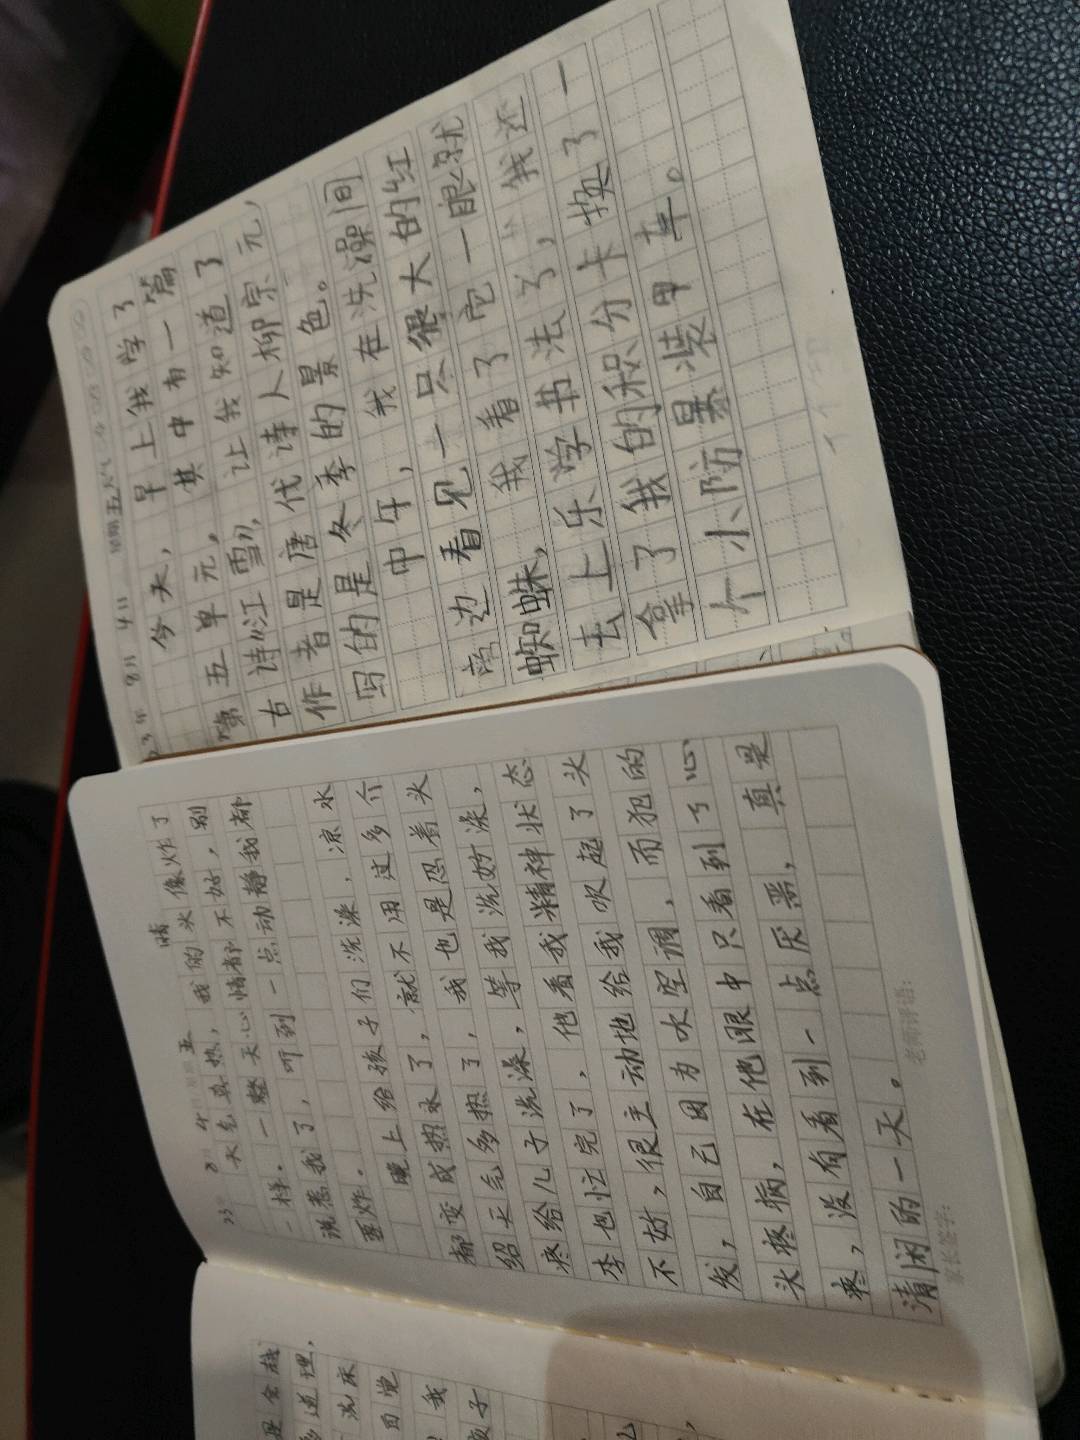 23年 8月 4日 星期五
今天，早上我学了
第五单元。其中有一篇
古诗《江雪》，让我知道了
作者是唐代诗人柳宗元，
写的是冬季的景色。
中午，我在洗澡间
旁边看见一只很大的红
蜘蛛，我看了它一眼就
去上乐学书法了，我还
拿了我的积分卡换了一
个小陌墨装甲车。
23 8月 4 星期五 晴
天气真热，我的头像炸了
一样。一整天心情都不好，别
说惹我了，听到一点动静我都
要炸。
晚上给孩子们洗澡，凉水
都变成热水了，就不用过多介
绍天气多热了，我也是忍着头
疼给儿子洗澡，等我洗好澡，
李也忙完了，他看我精神状态
不好，很主动地给我吹起了头
发，自己因为吹空调，而犯的
头疼病，在他眼中只看到了心
疼，没有看到一点厌恶，真是
清闲的一天。
家长签字：
老师评语：
道理，
洗床
自觉
我
孩子